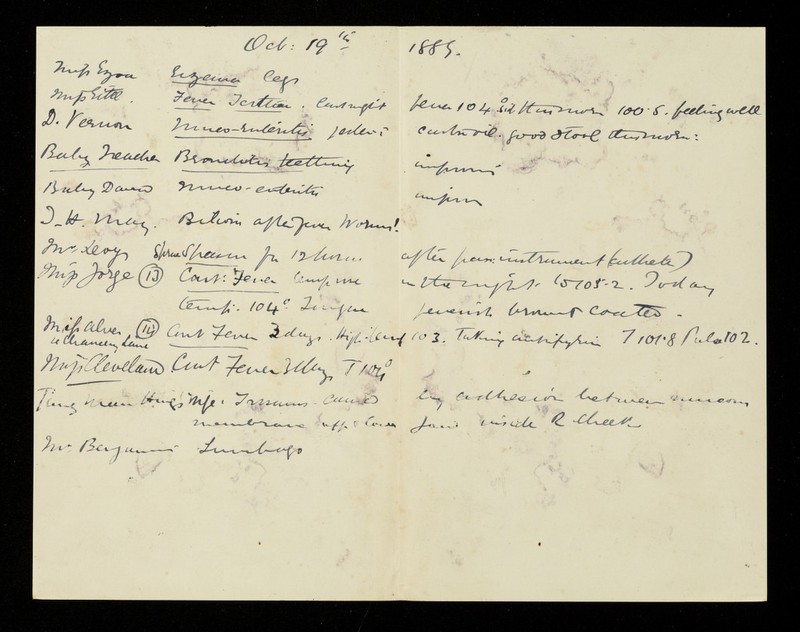 Oct: 19th 1889.
Miss Ezra Eczema legs
Miss Fever Tertian. last night fever 104° this morn 100.5. feeling well
D. Vernon Muco-enteritis castor oil. good stool this morn:
Baby Bronchitis teething improving
Baby Davis Muco-enteritis
I. H. May. after fever Worms!
Mr Levy Spasm for 12 hours. after pass: instrument (catheter)
Miss Jorge (13) Cont: Fever in the night to 105.2. Today
temp. 104° Tongue feverish brown & coated.
Miss Alves (14) Cont Fever 2 days. High temp 103. Taking antipyrin T 101.8 Pulse 102.
a Chancery Lane
Miss Cleveland Cont Fever 3 days T 104°
Trismus caused by adhesion between mucous
membrane upp & lower jaw inside R cheek
Mr Benjamin Lumbago